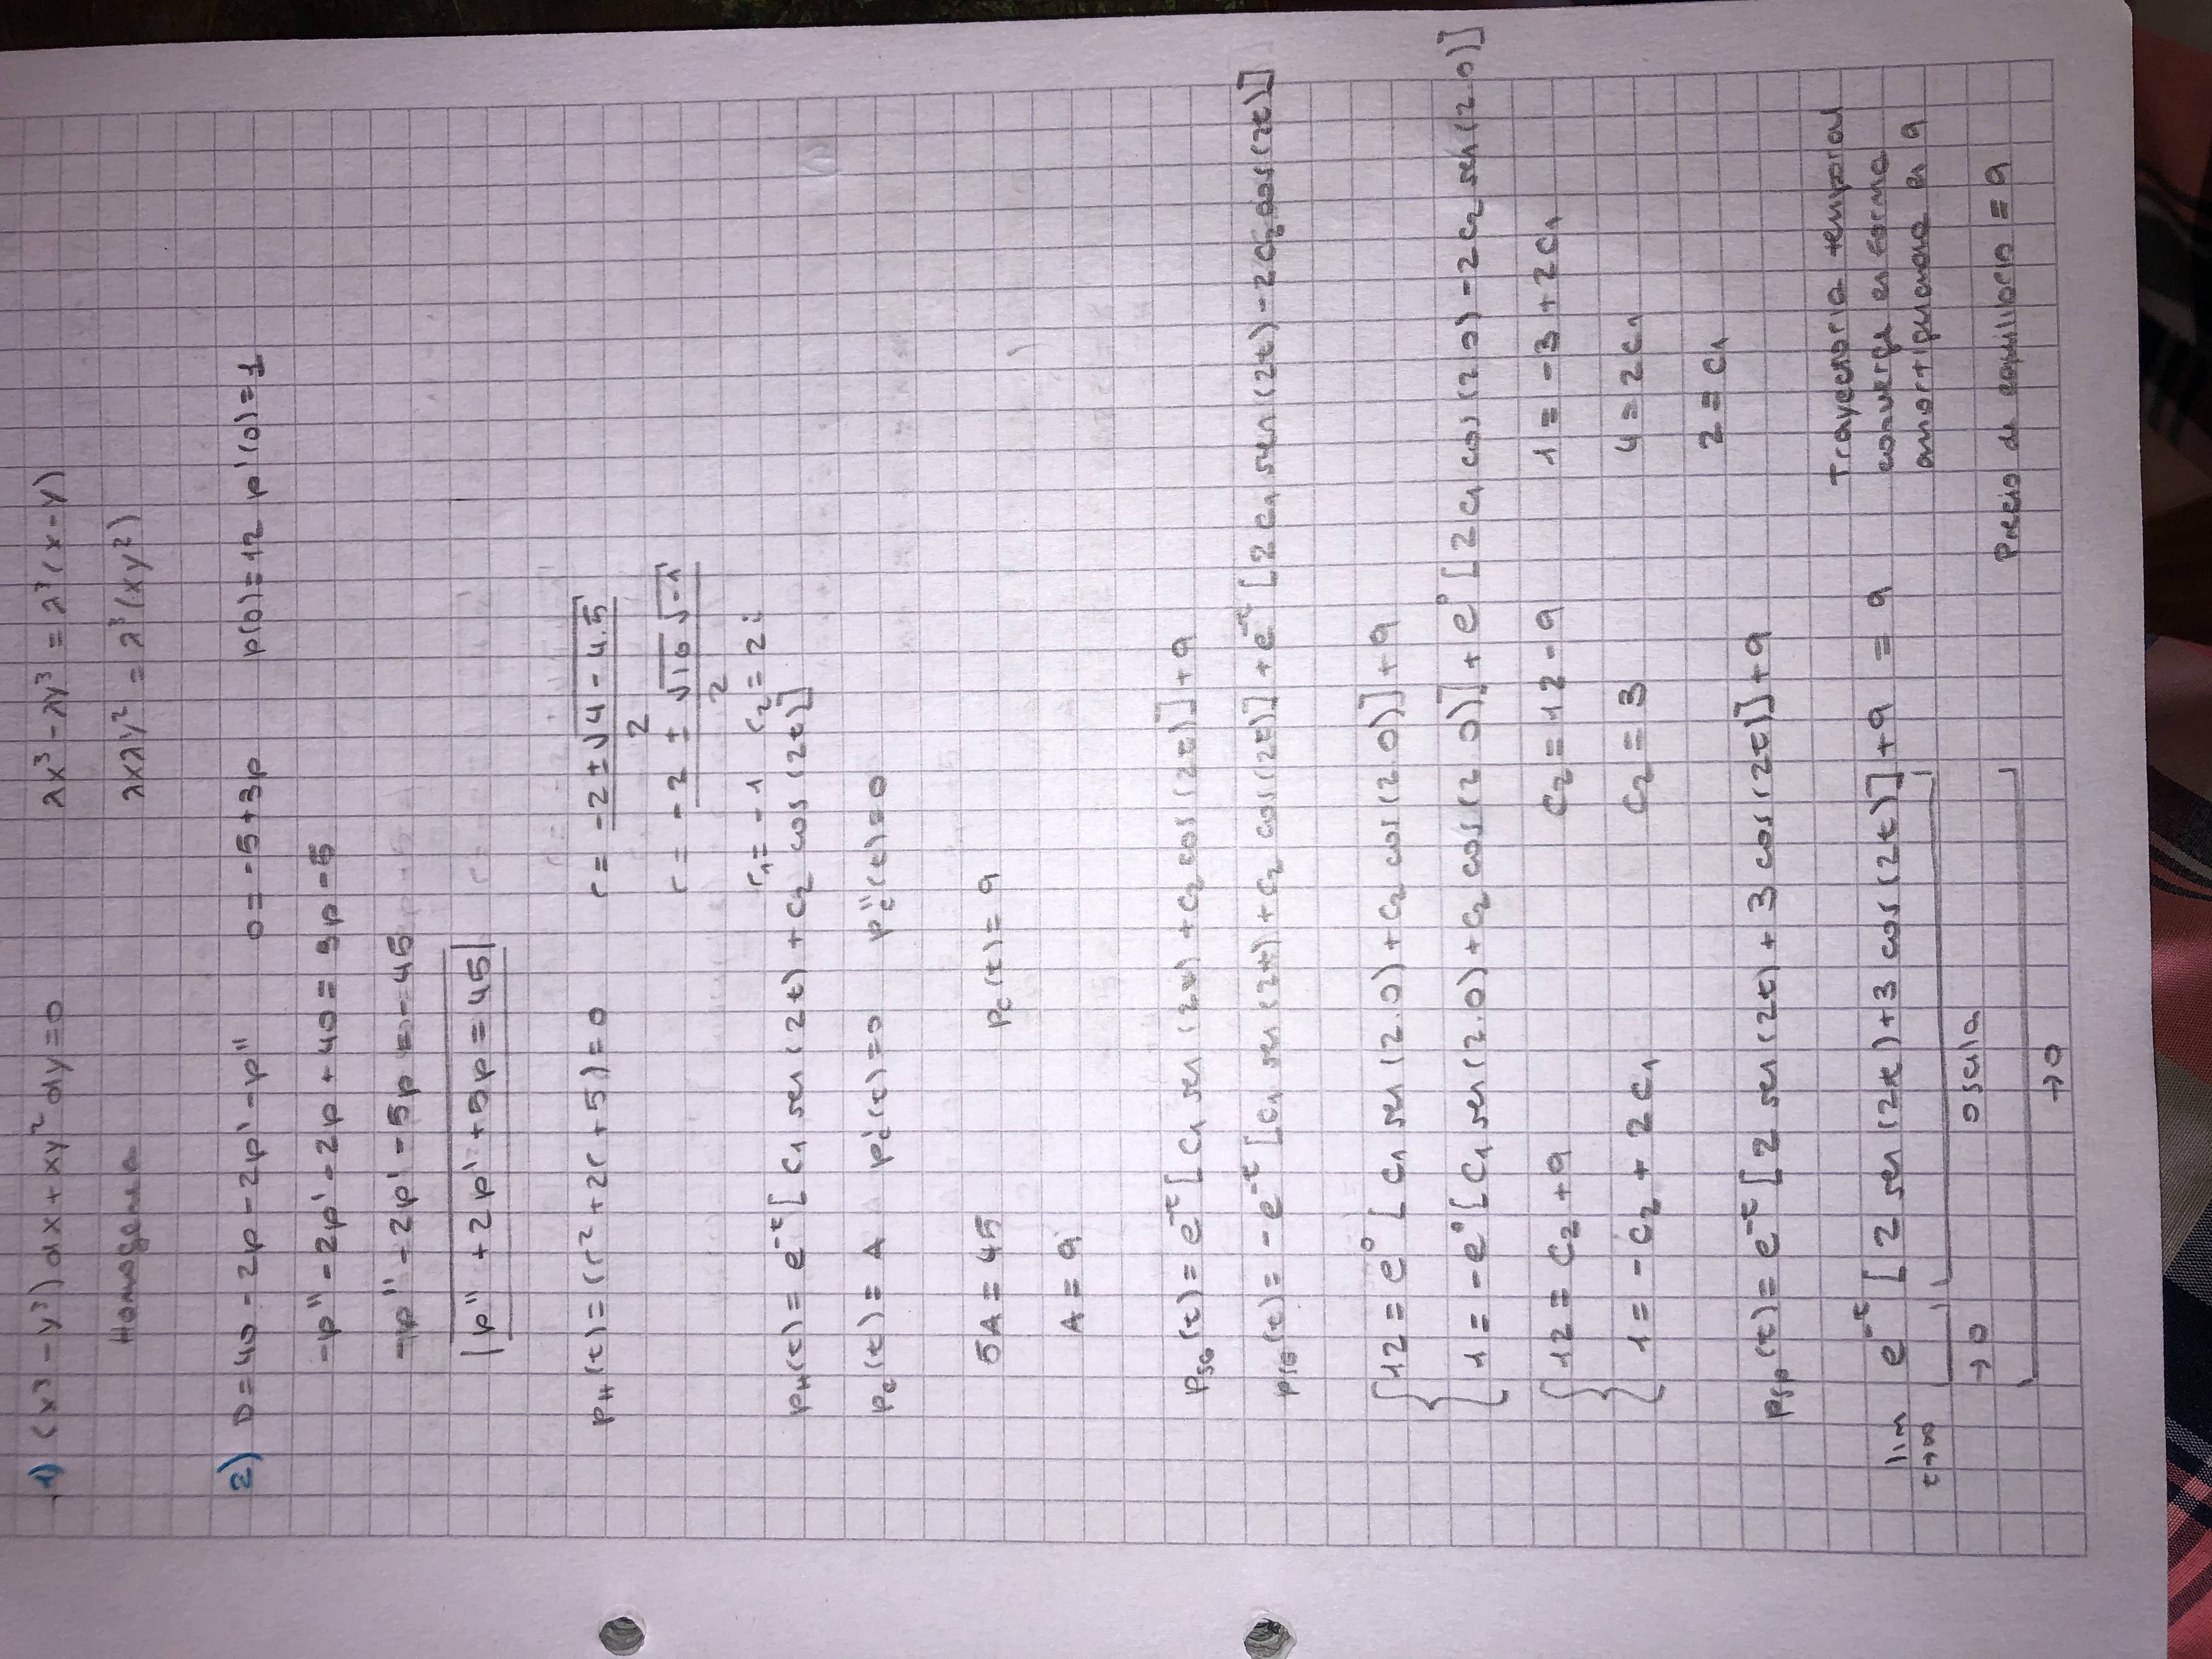 1) (x³ - y³) dx + xy² dy = 0 λx³ - λy³ = λ³(x - y)
Homogenea λxλy² = λ³(xy²)
2) D = 40 - 2p - 2p' - p'' O = -5 + 3p p(0) = 12 p'(0) = 1
-p'' - 2p' - 2p + 40 = 3p - 5
-p'' - 2p' - 5p = -45
|p'' + 2p' + 5p = 45|
p_H(t) = (r² + 2r + 5) = 0 r = (-2 ± √(4 - 4.5))/2
r = (-2 ± √16 √-1)/2
r₁ = -1 r₂ = 2i
p_H(t) = e^-t [C₁ sen(2t) + C₂ cos(2t)]
p_c(t) = A p_c'(t) = 0 p_c''(t) = 0
5A = 45 p_c(t) = 9
A = 9
p_SG(t) = e^-t [C₁ sen(2t) + C₂ cos(2t)] + 9
p_SG(t) = -e^-t [C₁ sen(2t) + C₂ cos(2t)] + e^-t [2C₁ sen(2t) - 2C₂ cos(2t)]
12 = e⁰ [C₁ sen(2.0) + C₂ cos(2.0)] + 9
1 = -e⁰ [C₁ sen(2.0) + C₂ cos(2 0)] + e⁰ [2C₁ cos(2 0) - 2C₂ sen(2.0)]
12 = C₂ + 9 C₂ = 12 - 9 1 = -3 + 2C₁
1 = -C₂ + 2C₁ C₂ = 3 4 = 2C₁
2 = C₁
p_SP(t) = e^-t [2 sen(2t) + 3 cos(2t)] + 9
Trayectoria temporal
lim t→∞ e^-t [2 sen(2t) + 3 cos(2t)] + 9 = 9 converge en forma
amortiguada a 9
→0 oscila
Precio de equilibrio = 9
→0